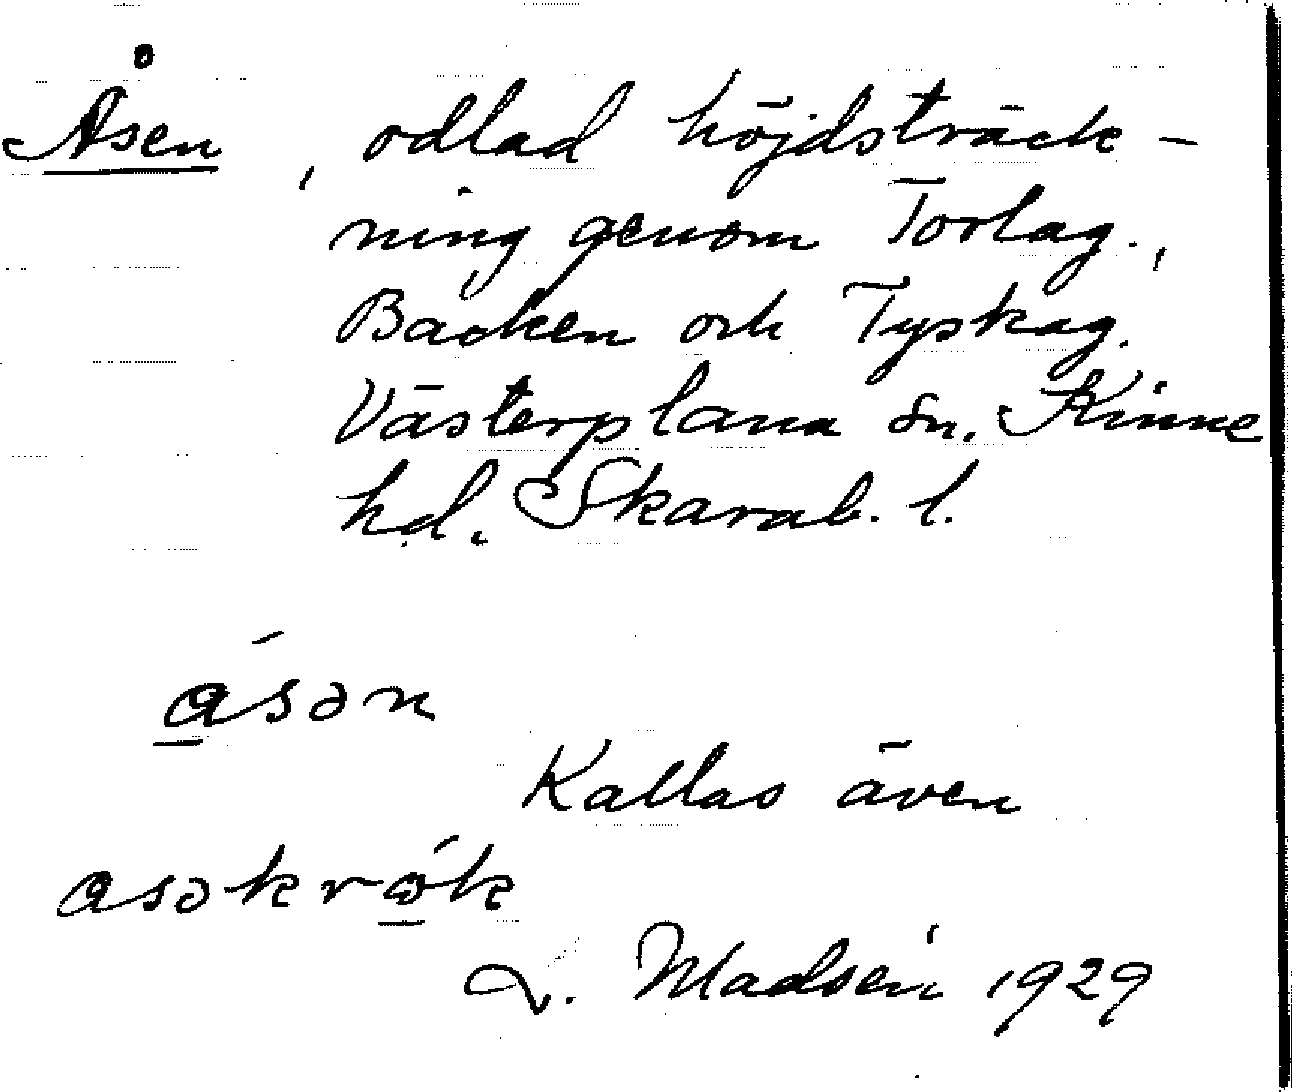 Åsen, odlad höjdsträck-
ning genom Torlag.,
Backen och Tyskag.
Västerplana sn. Kinne
hd. Skarab. l.
åsən
Kallas även
asəkrok
L. Madsén 1929